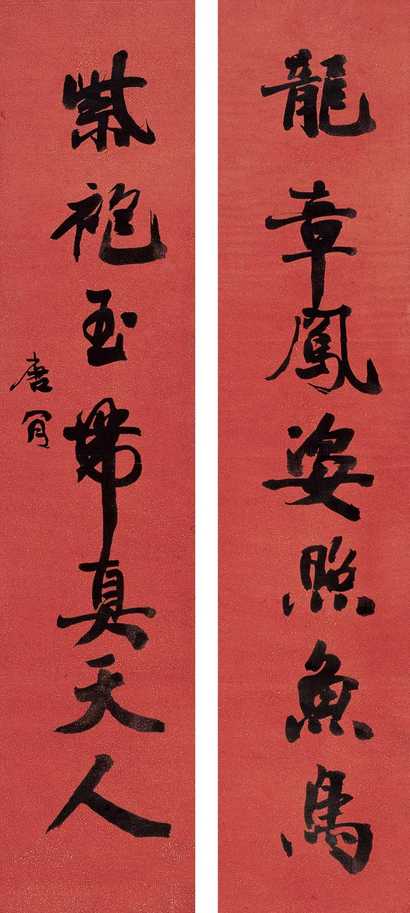 龍章鳳姿照魚鳥
紫袍玉帶真天人
唐肎